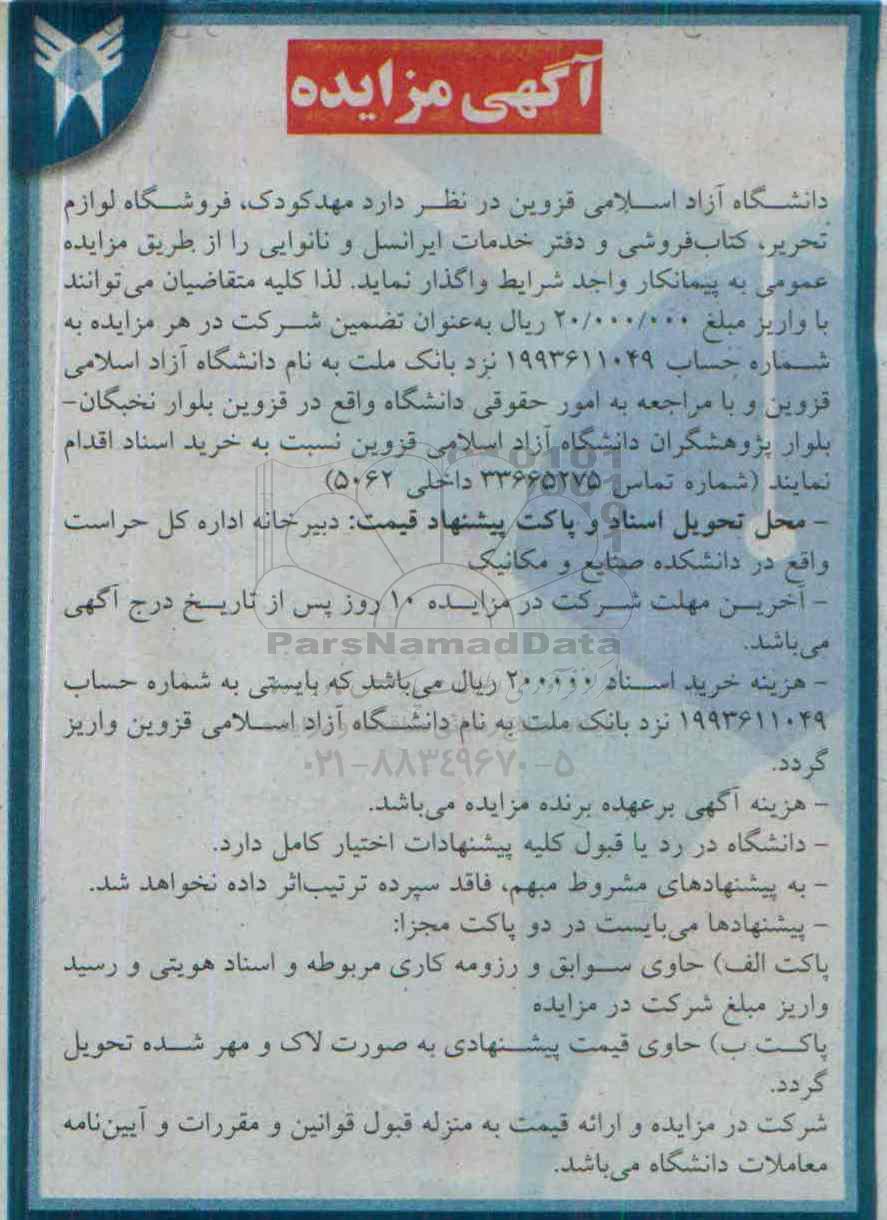 آگهی مزایده
دانشگاه آزاد اسلامی قزوین در نظر دارد مهدکودک، فروشگاه لوازم
تحریر، کتاب‌فروشی و دفتر خدمات ایرانسل و نانوایی را از طریق مزایده
عمومی به پیمانکار واجد شرایط واگذار نماید. لذا کلیه متقاضیان می‌توانند
با واریز مبلغ ۲۰/۰۰۰/۰۰۰ ریال به‌عنوان تضمین شرکت در هر مزایده به
شماره حساب ۱۹۹۳۶۱۱۰۴۹ نزد بانک ملت به نام دانشگاه آزاد اسلامی
قزوین و با مراجعه به امور حقوقی دانشگاه واقع در قزوین بلوار نخبگان-
بلوار پژوهشگران دانشگاه آزاد اسلامی قزوین نسبت به خرید اسناد اقدام
نمایند (شماره تماس ۳۳۶۶۵۲۷۵ داخلی ۵۰۶۲)
- محل تحویل اسناد و پاکت پیشنهاد قیمت: دبیرخانه اداره کل حراست
واقع در دانشکده صنایع و مکانیک
- آخرین مهلت شرکت در مزایده ۱۰ روز پس از تاریخ درج آگهی
ParsNamadData
می‌باشد.
- هزینه خرید اسناد ۲۰۰۰۰۰ ریال می‌باشد که بایستی به شماره حساب
۱۹۹۳۶۱۱۰۴۹ نزد بانک ملت به نام دانشگاه آزاد اسلامی قزوین واریز
گردد.
۰۲۱-۸۸۳۴۹۶۷۰-۵
- هزینه آگهی برعهده برنده مزایده می‌باشد.
- دانشگاه در رد یا قبول کلیه پیشنهادات اختیار کامل دارد.
- به پیشنهادهای مشروط مبهم، فاقد سپرده ترتیب‌اثر داده نخواهد شد.
- پیشنهادها می‌بایست در دو پاکت مجزا:
پاکت الف) حاوی سوابق و رزومه کاری مربوطه و اسناد هویتی و رسید
واریز مبلغ شرکت در مزایده
پاکت ب) حاوی قیمت پیشنهادی به صورت لاک و مهر شده تحویل
گردد.
شرکت در مزایده و ارائه قیمت به منزله قبول قوانین و مقررات و آیین‌نامه
معاملات دانشگاه می‌باشد.